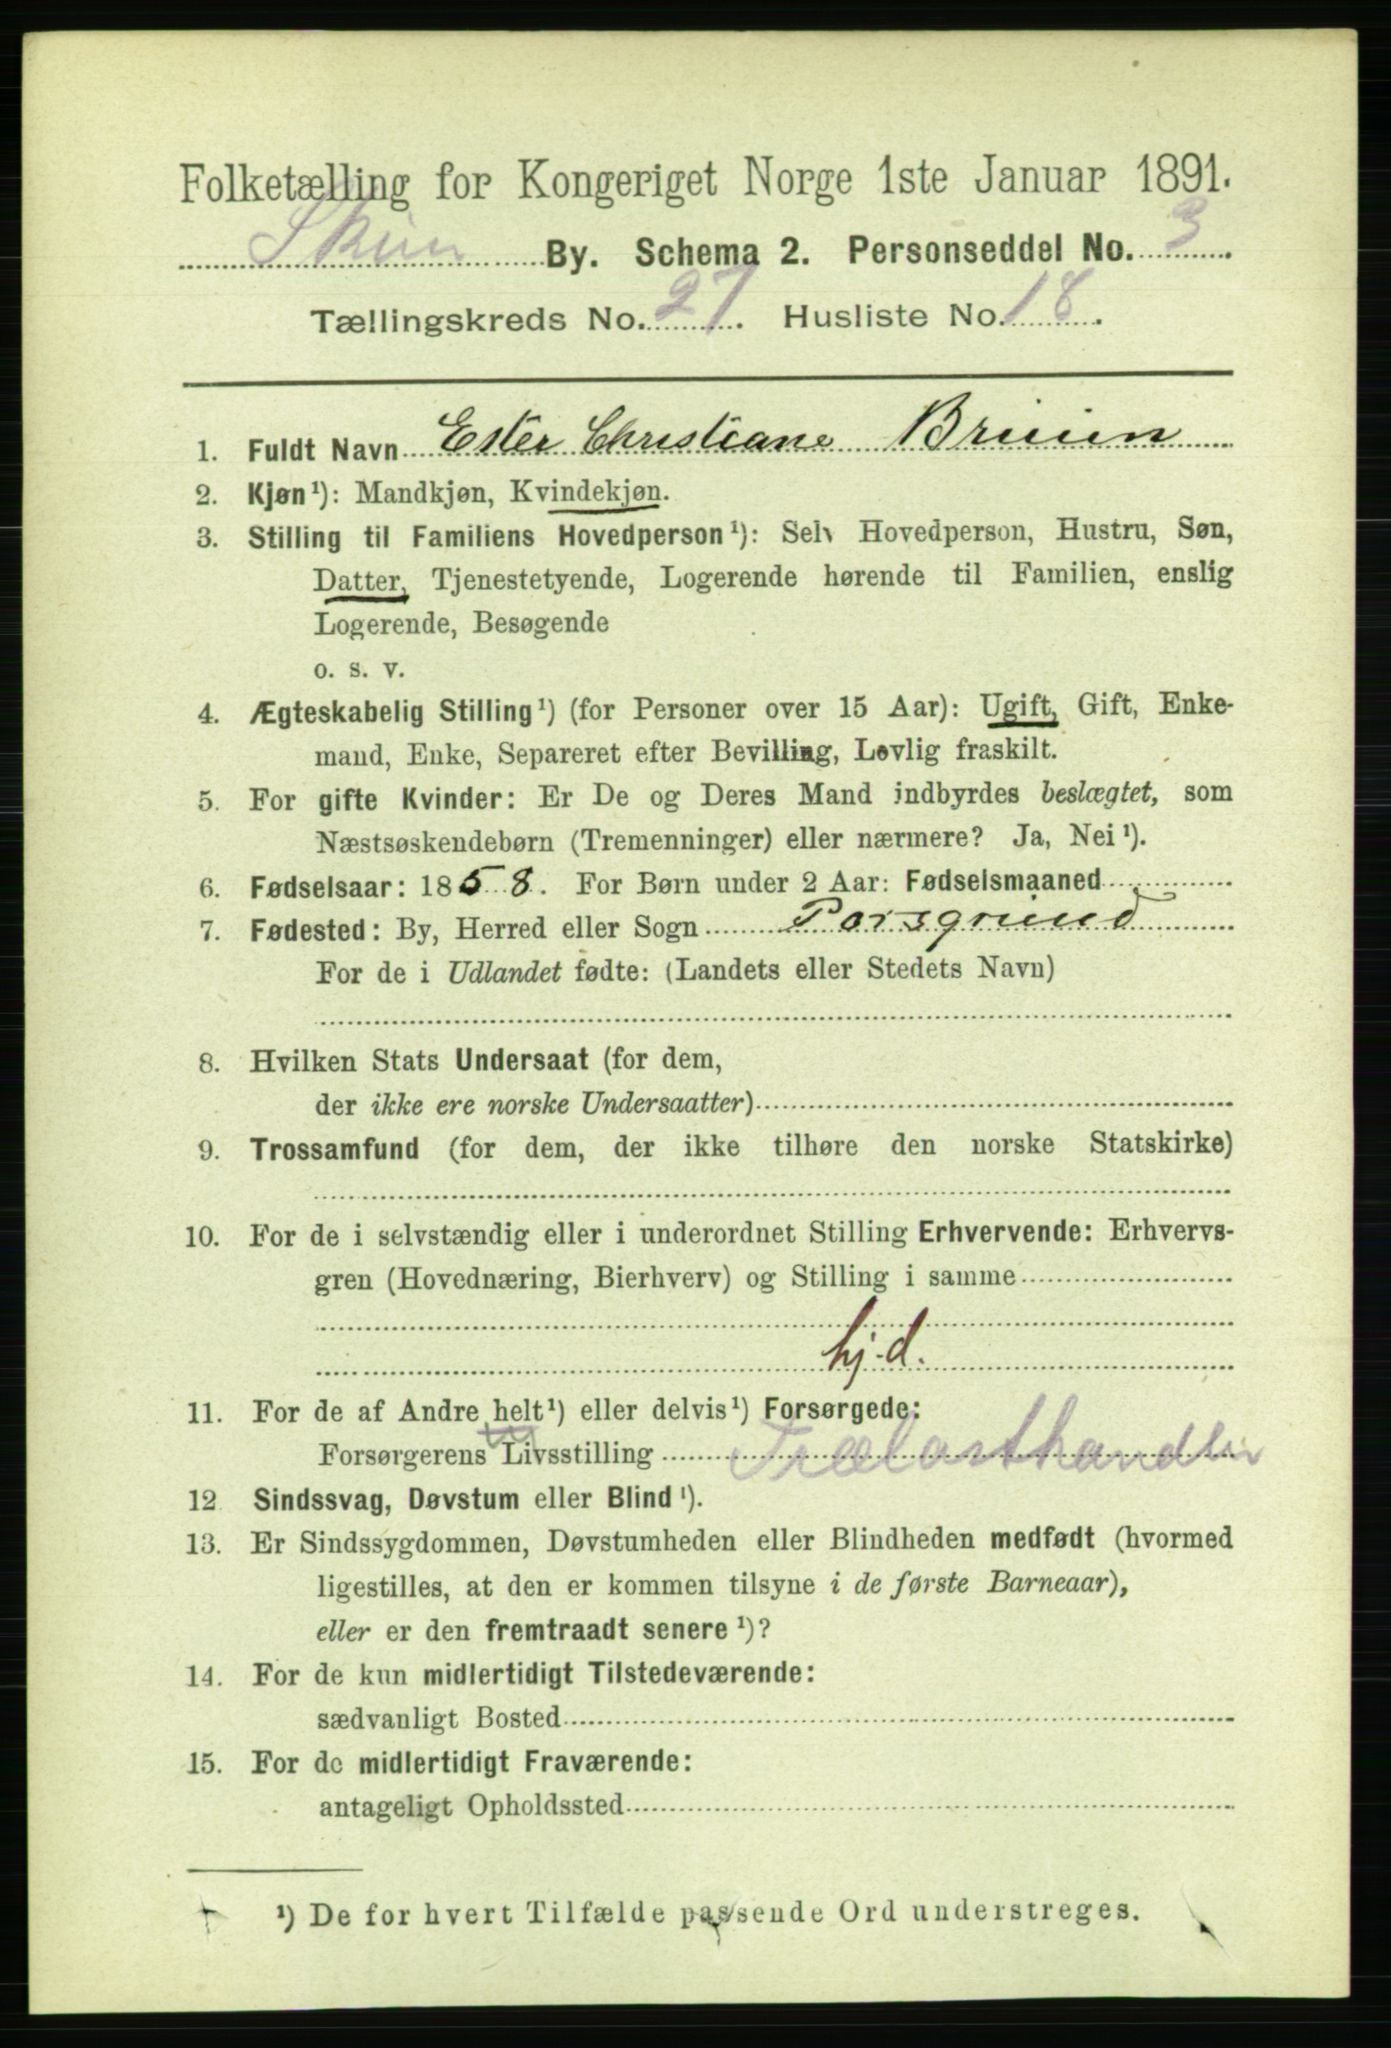 Folketælling for Kongeriget Norge 1ste Januar 1891.
Skien By. Schema 2. Personseddel No. 3
Tællingskreds No. 27. Husliste No. 18.
1. Fuldt Navn Ester Christiane Bruun
2. Kjøn¹): Mandkjøn, Kvindekjøn.
3. Stilling til Familiens Hovedperson¹): Selv Hovedperson, Hustru, Søn,
Datter, Tjenestetyende, Logerende hørende til Familien, enslig
Logerende, Besøgende
o. s. v.
4. Ægteskabelig Stilling¹) (for Personer over 15 Aar): Ugift, Gift, Enke-
mand, Enke, Separeret efter Bevilling, Lovlig fraskilt.
5. For gifte Kvinder: Er De og Deres Mand indbyrdes beslægtet, som
Næstsøskendebørn (Tremenninger) eller nærmere? Ja, Nei¹).
6. Fødselsaar: 1858. For Børn under 2 Aar: Fødselsmaaned
7. Fødested: By, Herred eller Sogn Porsgrund
For de i Udlandet fødte: (Landets eller Stedets Navn)
8. Hvilken Stats Undersaat (for dem,
der ikke ere norske Undersaatter)
9. Trossamfund (for dem, der ikke tilhøre den norske Statskirke)
10. For de i selvstændig eller i underordnet Stilling Erhvervende: Erhvervs-
gren (Hovednæring, Bierhverv) og Stilling i samme
hj.d.
11. For de af Andre helt¹) eller delvis¹) Forsørgede:
Forsørgerens Livsstilling Trælasthandler
12. Sindssvag, Døvstum eller Blind¹).
13. Er Sindssygdommen, Døvstumheden eller Blindheden medfødt (hvormed
ligestilles, at den er kommen tilsyne i de første Barneaar),
eller er den fremtraadt senere¹)?
14. For de kun midlertidigt Tilstedeværende:
sædvanligt Bosted
15. For de midlertidigt Fraværende:
antageligt Opholdssted
¹) De for hvert Tilfælde passende Ord understreges.